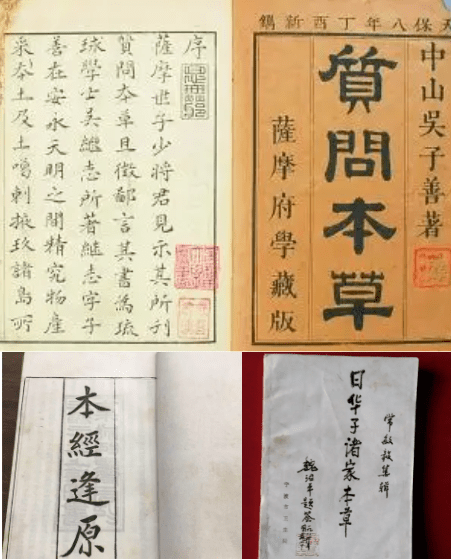 天保八年丁酉新鐫
中山吳子善著
質問本草
薩摩府學藏版
序
薩摩世子少將君見示其所刊
質問本草且徵鄙言其書爲琉
球學士吳継志所著継志字子
善在安永天明之間精究物產
采本土及土噶剌掖玖諸島所
本經逢原
常敏毅集辑
日华子诸家本草
魏治平题签